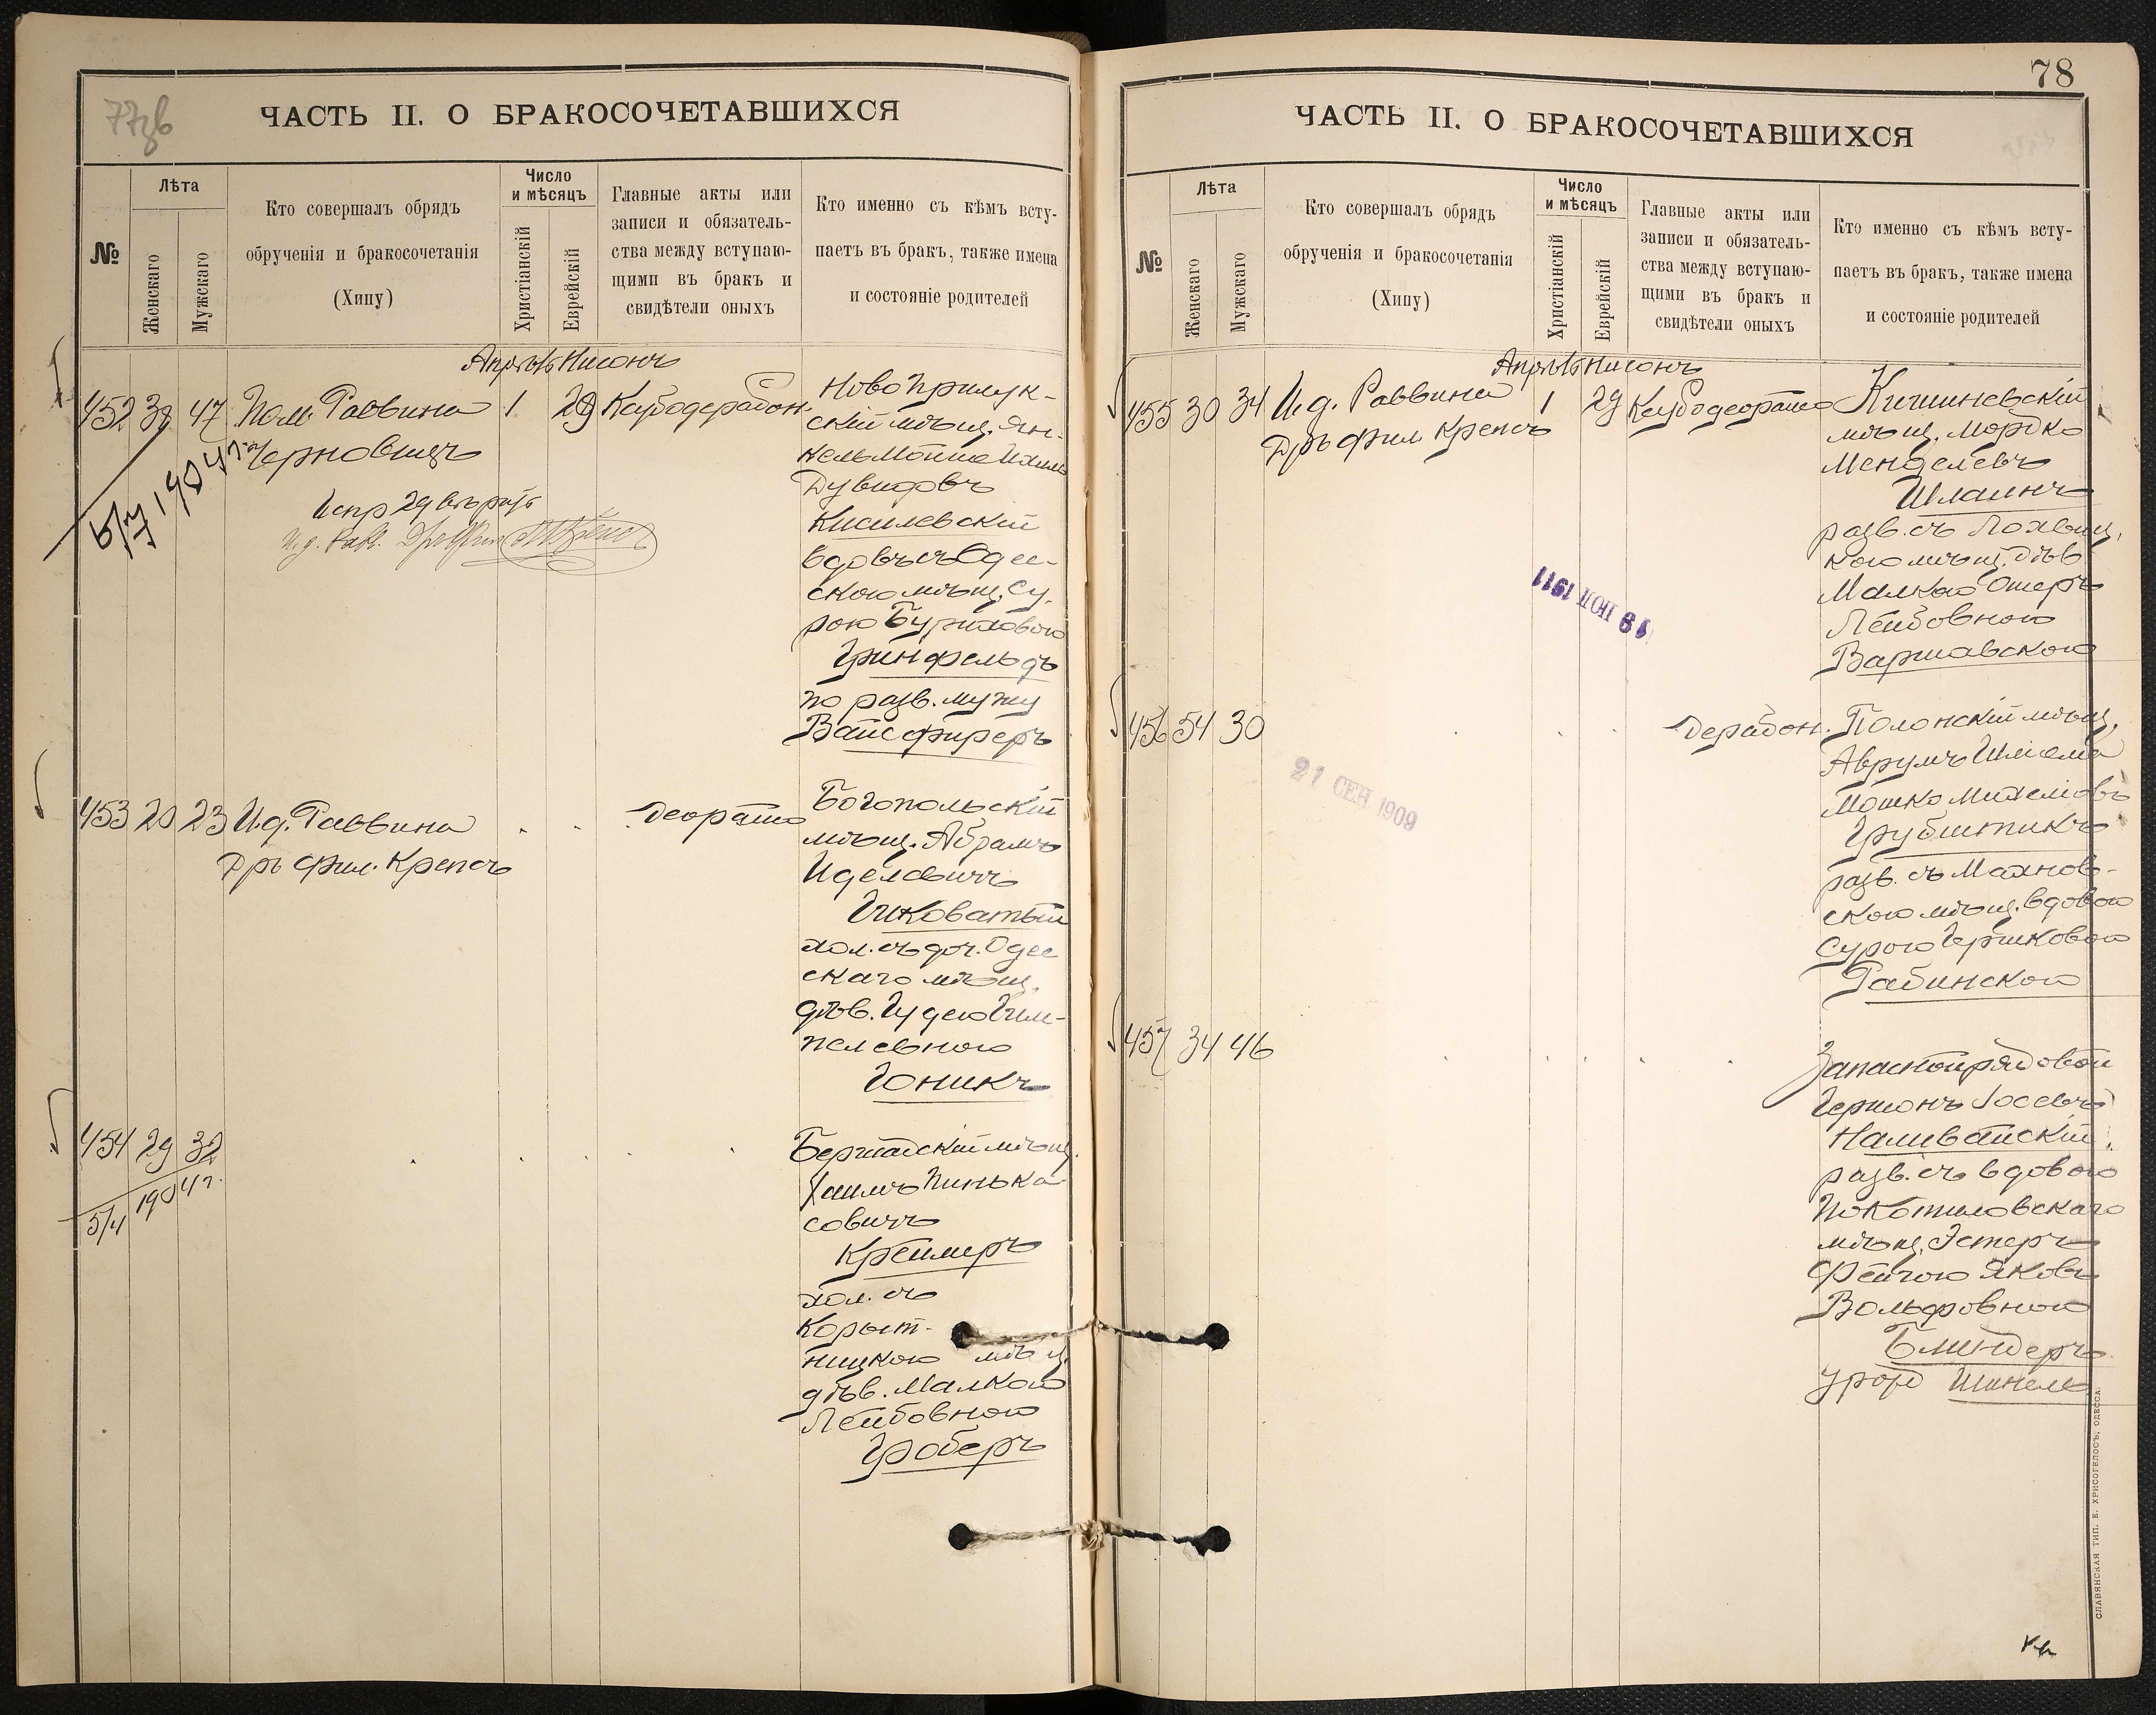 77зв
ЧАСТЬ II. О БРАКОСОЧЕТАВШИХСЯ
№
Лѣта
Женскаго
Мужскаго
Кто совершалъ обрядъ
обрученія и бракосочетанія
(Хипу)
Число
и мѣсяцъ
Христіанскій
Еврейскій
Главные акты или
записи и обязатель-
ства между вступаю-
щими въ бракъ и
свидѣтели оныхъ
Кто именно съ кѣмъ всту-
паетъ въ бракъ, также имена
и состояніе родителей
Апрѣль Нисонъ
452 38 47 Пом. Раввина 1 29
Черновицъ
5/7 1904 г.
Испр 29 вѣрить
И. д. Равв. Дръ Фил
Новоприлук-
скій мѣщ. Ян-
кель Мойше Ихиль
Дувидовъ
Киселевскій
вдовъ съ Одес-
скою мѣщ. Су-
рою Буриховою
Гринфельдъ
по разв. мужу
Вайсфиреръ
453 20 23 И.д. Раввина
Дръ фил. Крепсъ
Богопольскій
мѣщ. Абрамъ
Иделевичъ
Гиковатый
хол. съ доч. Одес
скаго мѣщ.
дѣв. Гудею Гим-
пелевною
Гоникъ
454 29 32
5/4 1904 г.
Бершадскій мѣщ.
Хаимъ Пинька-
совичъ
Креймеръ
хол. съ
Корыт-
ницкою мѣщ.
дѣв. Малкою
Лейбовною
Гроберъ
78
ЧАСТЬ II. О БРАКОСОЧЕТАВШИХСЯ
№
Лѣта
Женскаго
Мужскаго
Кто совершалъ обрядъ
обрученія и бракосочетанія
(Хипу)
Число
и мѣсяцъ
Христіанскій
Еврейскій
Главные акты или
записи и обязатель-
ства между вступаю-
щими въ бракъ и
свидѣтели оныхъ
Кто именно съ кѣмъ всту-
паетъ въ бракъ, также имена
и состояніе родителей
Апрѣль Нисонъ
455 30 34 И.д. Раввина 1 29
Дръ фил Крепсъ
Кишиневскій
мѣщ. Мордко
Менделевъ
Шлаинъ
разв. съ Лохвиц.
кою мѣщ. дѣв
Малкою Эстеръ
Лейбовною
Варшавскою
19 ІЮЛ 1911
456 54 30
Полонскій мѣщ.
Аврумъ Шлема
Мошко Михелевъ
Грубштикъ
разв. съ Махнов-
скою мѣщ. вдовою
Сурою Гершковою
Рабинскою
21 СЕН 1909
457 34 46
Запасной рядовой
Гершонъ Іосевъ
Наливайскій
разв. съ вдовою
Покотиловскаго
мѣщ. Эстеръ
Фейгою Яковъ
Вольфовною
Блиндеръ
урожд Шинель
СЛАВЯНСКАЯ ТИП. Е. ХРИСОГЕЛОСЪ, ОДЕССА.